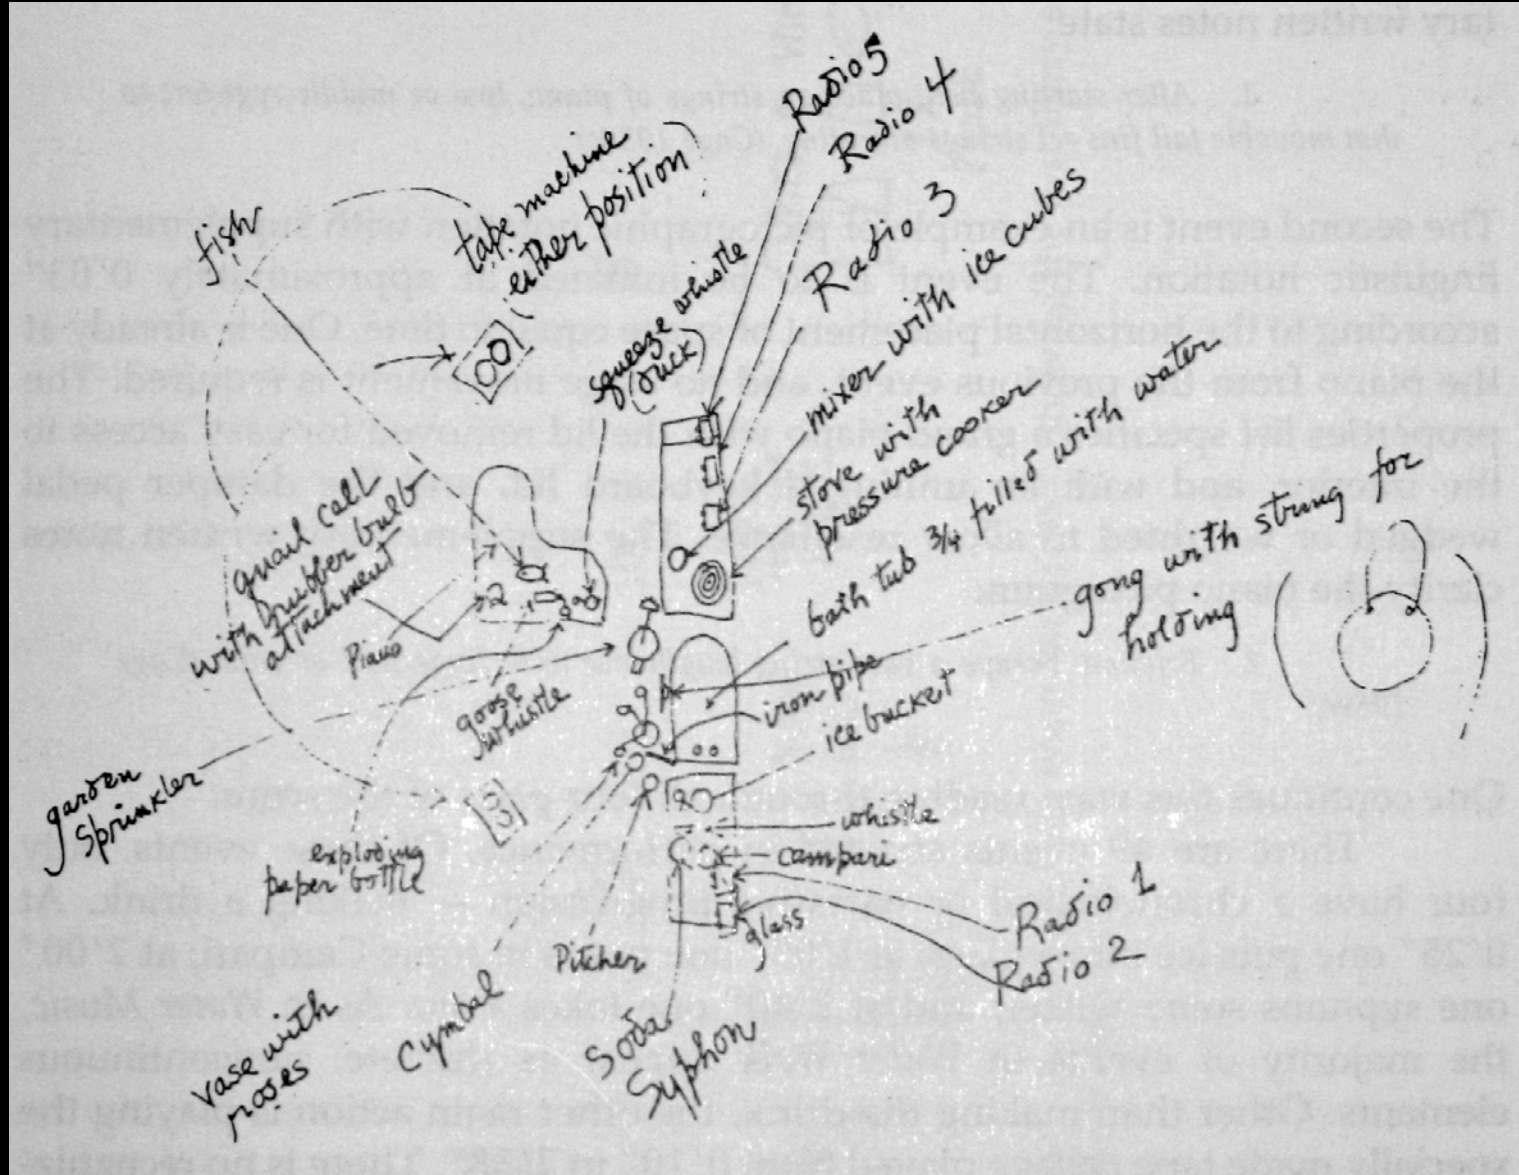 Radio 5
Radio 4
Radio 3
fish
tape machine
(either position)
squeeze whistle
(duck)
mixer with ice cubes
stove with
pressure cooker
bath tub 3/4 filled with water
gong with string for
holding
quail call
with rubber bulb
attachment
Piano
goose
whistle
iron pipe
ice bucket
garden
sprinkler
exploding
paper bottle
whistle
campari
glass
Radio 1
Radio 2
Pitcher
Cymbal
Soda
Syphon
vase with
roses